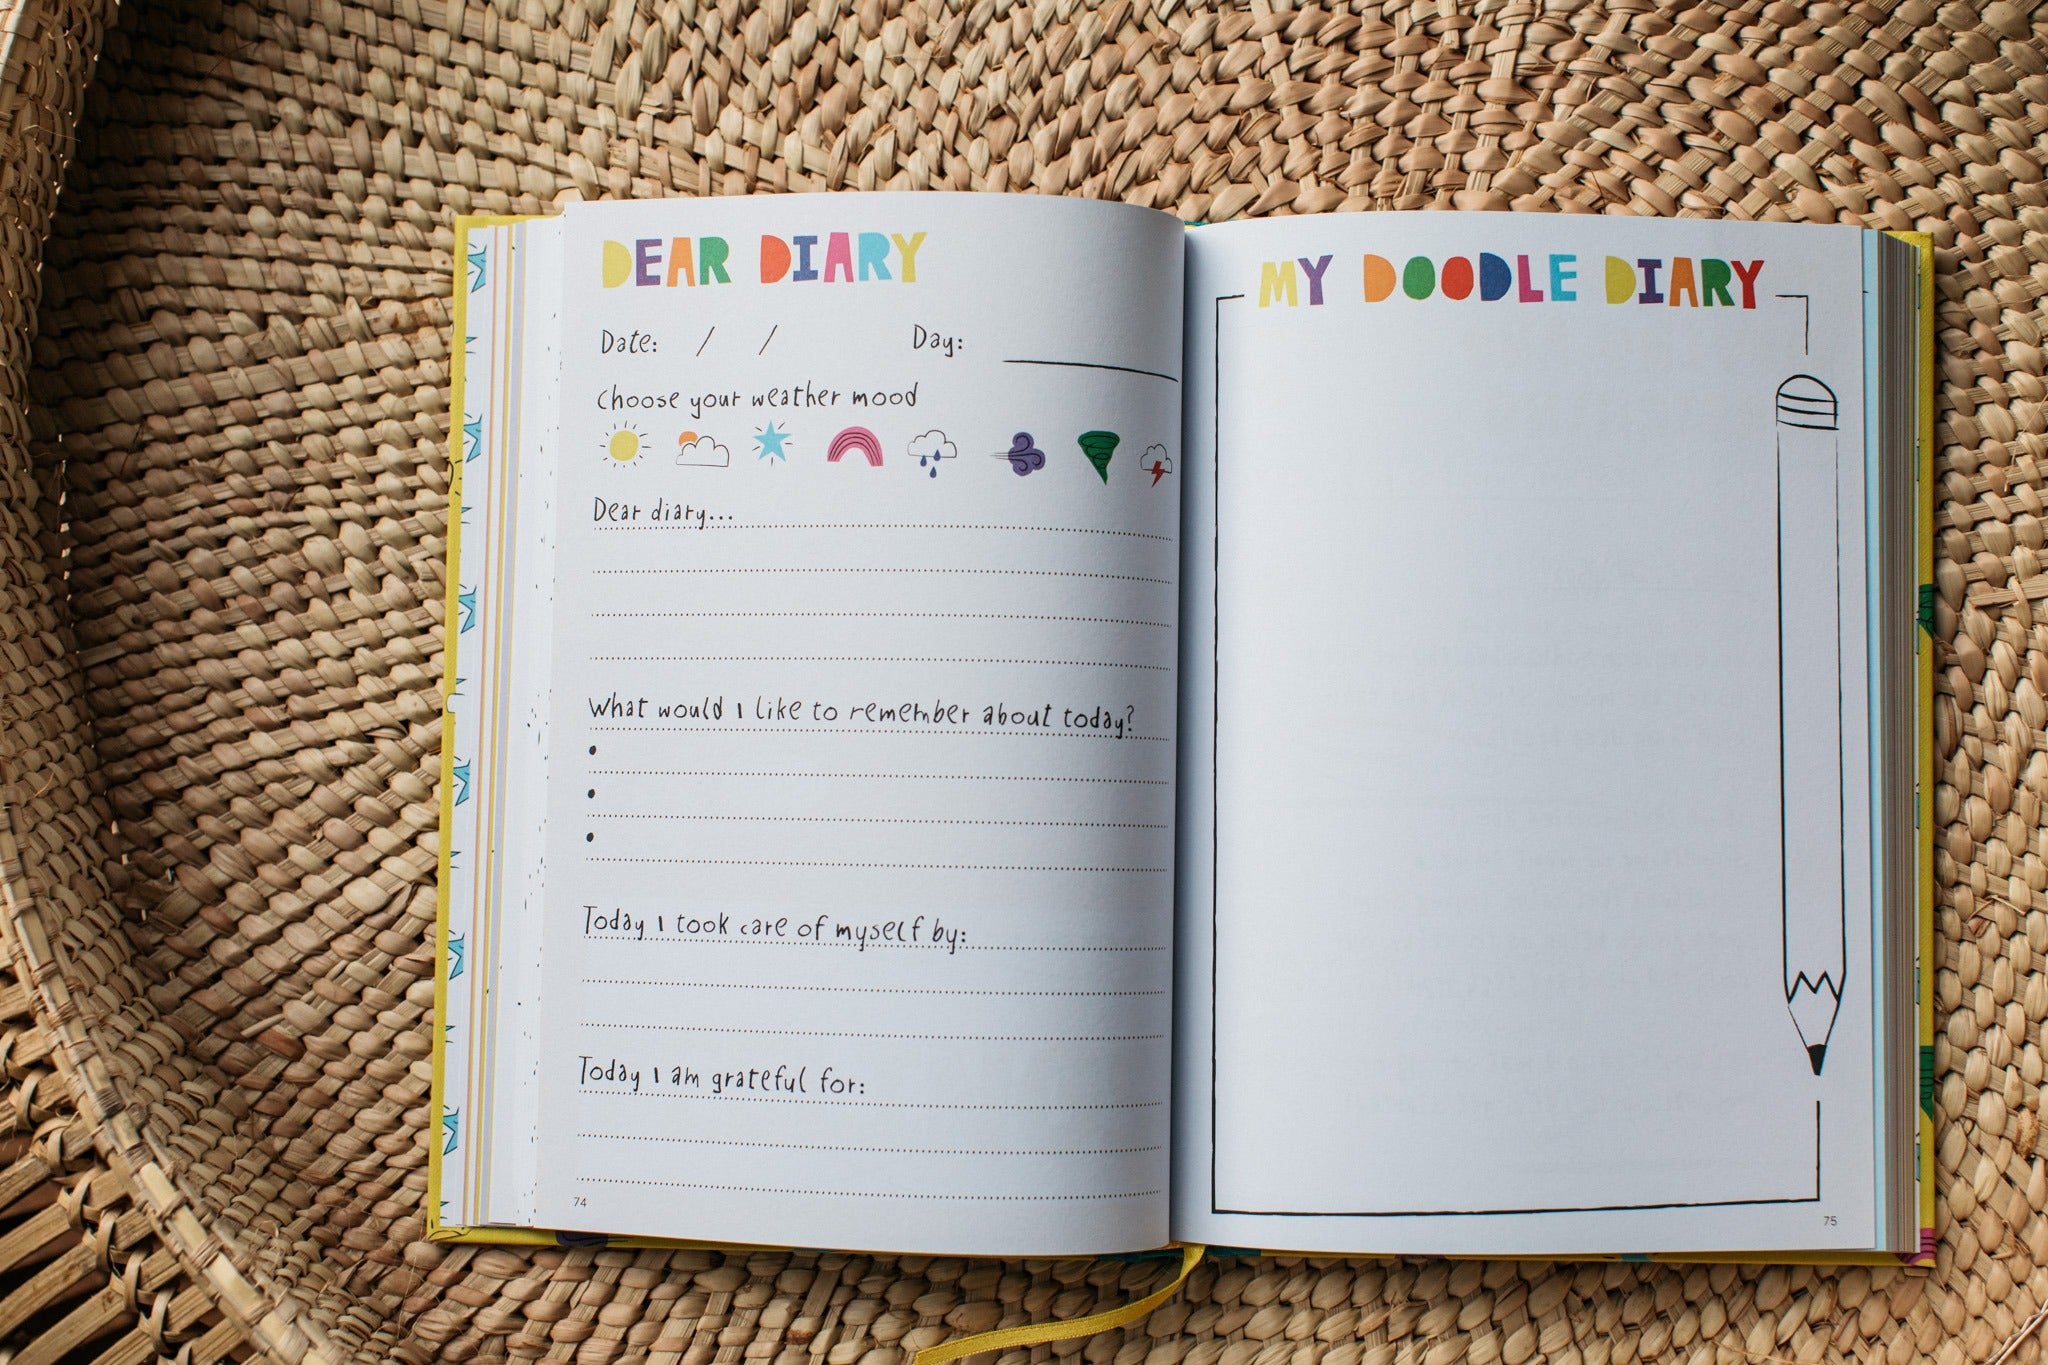 DEAR DIARY
Date: / / Day:
Choose your weather mood
Dear diary...
What would I like to remember about today?
•
•
•
Today I took care of myself by:
Today I am grateful for:
74
MY DOODLE DIARY
75